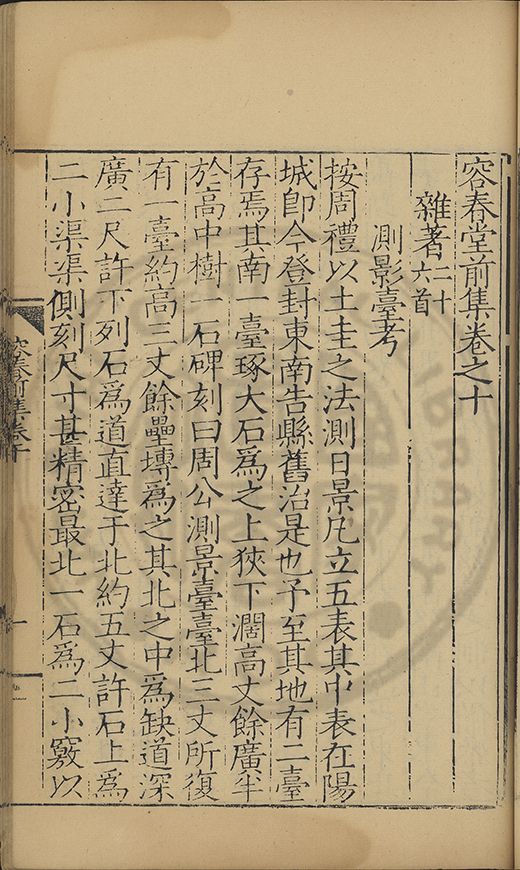 容春堂前集卷之十
雜著二十六首
測影臺考
按周禮以土圭之法測日景凡立五表其中表在陽
城卽今登封東南告縣舊治是也予至其地有二臺
存焉其南一臺琢大石爲之上狹下濶高丈餘廣半
於高中樹一石碑刻曰周公測景臺臺北三丈所復
有一臺約高三丈餘壘塼爲之其北之中爲缺道深
廣二尺許下列石爲道直達于北約五丈許石上爲
二小渠渠側刻尺寸甚精密最北一石爲二小竅以
容春前集卷十
一